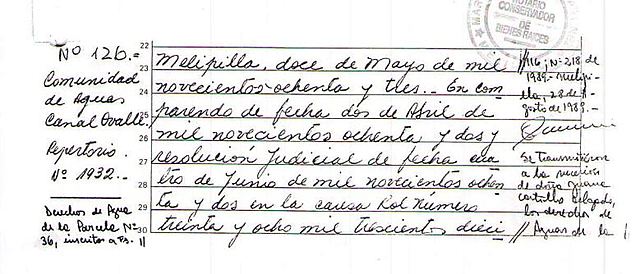 NOTARIO
CONSERVADOR
DE
BIENES RAICES
Nº 126.-
Comunidad
de Aguas
Canal Ovalle.
Repertorio
Nº 1932.-
Derechos de Agua
de la Parcela Nº
36, inscritos a Fs. 11
22
23
24
25
26
27
28
29
30
Melipilla, doce de Mayo de mil
novecientos ochenta y tres.- En com
parendo de fecha dos de Abril de
mil novecientos ochenta y dos y
resolución Judicial de fecha cua
tro de Junio de mil novecientos ochen
ta y dos en la causa Rol Número
treinta y ocho mil trescientos dieci
116, Nº 218 de
1989.- Melipi
lla, 28 de A
gosto de 1989.-
Se transmitieron
a la sucesión
de doña Juana
Castillo Delgado,
los derechos de
Aguas de la